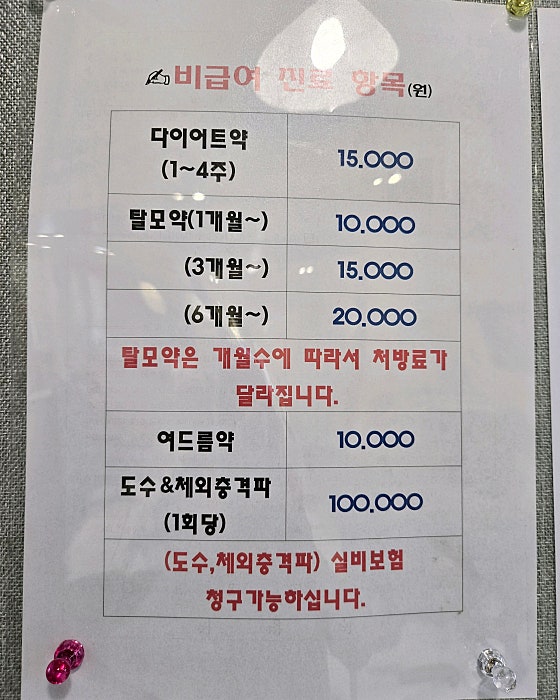 ✍비급여 진료 항목(원)
다이어트약
(1~4주)
15.000
탈모약(1개월~)
10.000
(3개월~)
15.000
(6개월~)
20.000
탈모약은 개월수에 따라서 처방료가
달라집니다.
여드름약
10.000
도수&체외충격파
(1회당)
100.000
(도수,체외충격파) 실비보험
청구가능하십니다.